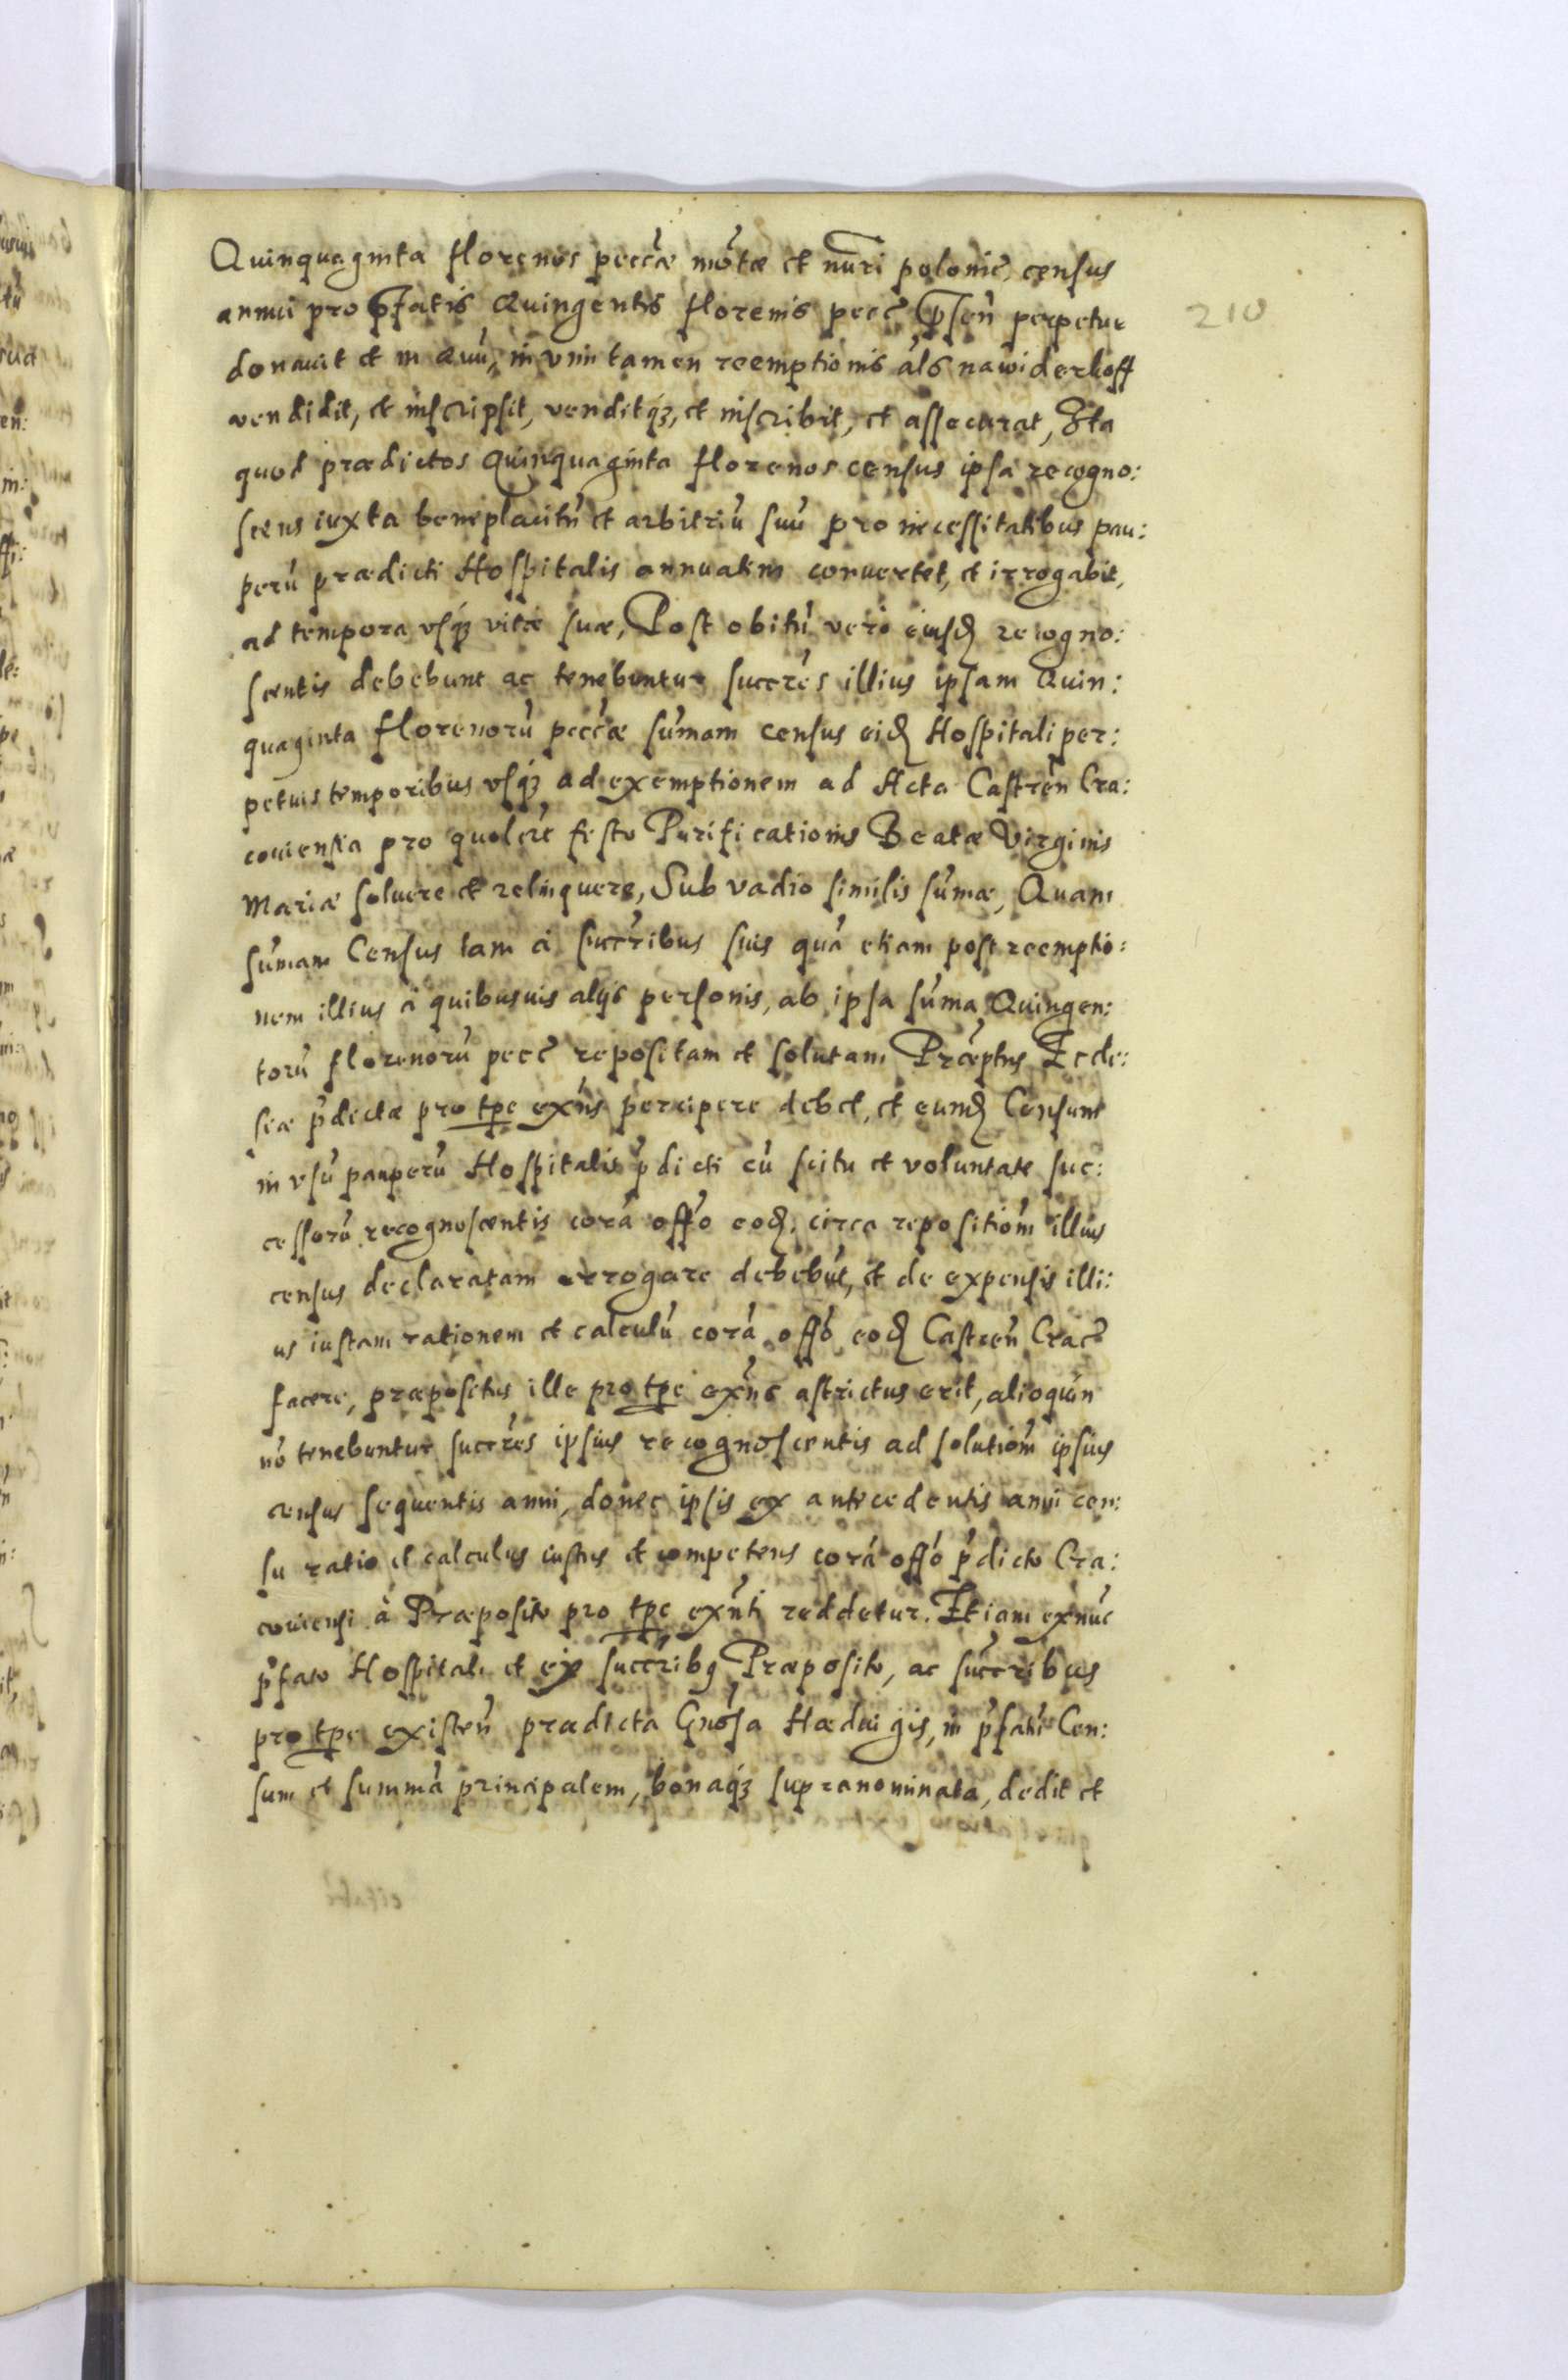 Quinquaginta florenos peccæ mõtæ et nuri polonic̃, census
210
annui pro p̃fatis Quingentis florenis pecc̃ p̃señ perpetue
donauit et in æuũ, in vim tamen reemptionis als nawiderkoff
vendidit, et inscripsit, venditq́3, et inscribit, et assecurat, Ita
quod prædictos Quinquaginta florenos census ipsa recogno:
scens iuxta beneplacitũ et arbitriũ suũ pro necessitatibus pau:
perũ prædicti Hospitalis annuatim conuertet, et irrogabit,
ad tempora vsq́3 vitæ suæ, Post obitũ vero eiusd recogno:
scentis debebunt ac tenebuntur succres illius ipsam Quin:
quaginta florenorũ peccæ sũmam census eid Hospitali per:
petuis temporibus vsq́3 ad exemptionem ad Acta Castreñ Cra:
couiensia pro quolibet festo Purificationis Beatæ Virginis
Mariæ soluere et relinquere, Sub vadio similis sũmæ, Quam
sũmam Census tam à succribus suis quã etiam post reemptio:
nem illius à quibusuis alijs personis, ab ipsa sũma Quingen:
torũ florenorũ pecc̃ repositam et solutam Præptus Eccle:
siæ p̃dictæ pro tpe exñs percipere debet, et eund Censum
in vsũ pauperũ Hospitalis p̃dicti cũ scitu et voluntate suc:
cessorũ recognoscentis corã offo eod, circa repositiom illius
census declaratam errogare debebũt, et de expensis illi:
us iustam rationem et calculũ corã offo eod Castreñ Crac̃
facere, præpositus ille pro tpe exñs astrictus erit, alioquin
nõ tenebuntur succres ipsius recognoscentis ad solutiom ipsius
census sequentis anni, donec ipsis ex antecedentis anni cen:
su ratio et calculus iustus et competens corã offo p̃dicto Cra:
couiensi à Præposito pro tpe exñti reddetur. Etiam exnũc
p̃fato Hospitali et eix succribq Præposito, ac succribus
pro tpe existeñ prædicta Gnosa Hæduigis, in p̃fatũ Cen:
sum et summã principalem, bonaq́3 supranominata, dedit et